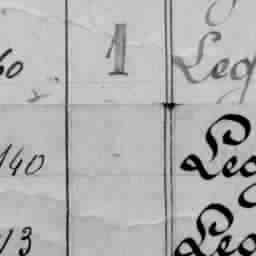 60 1 Leg
140 Leg
13 Leg